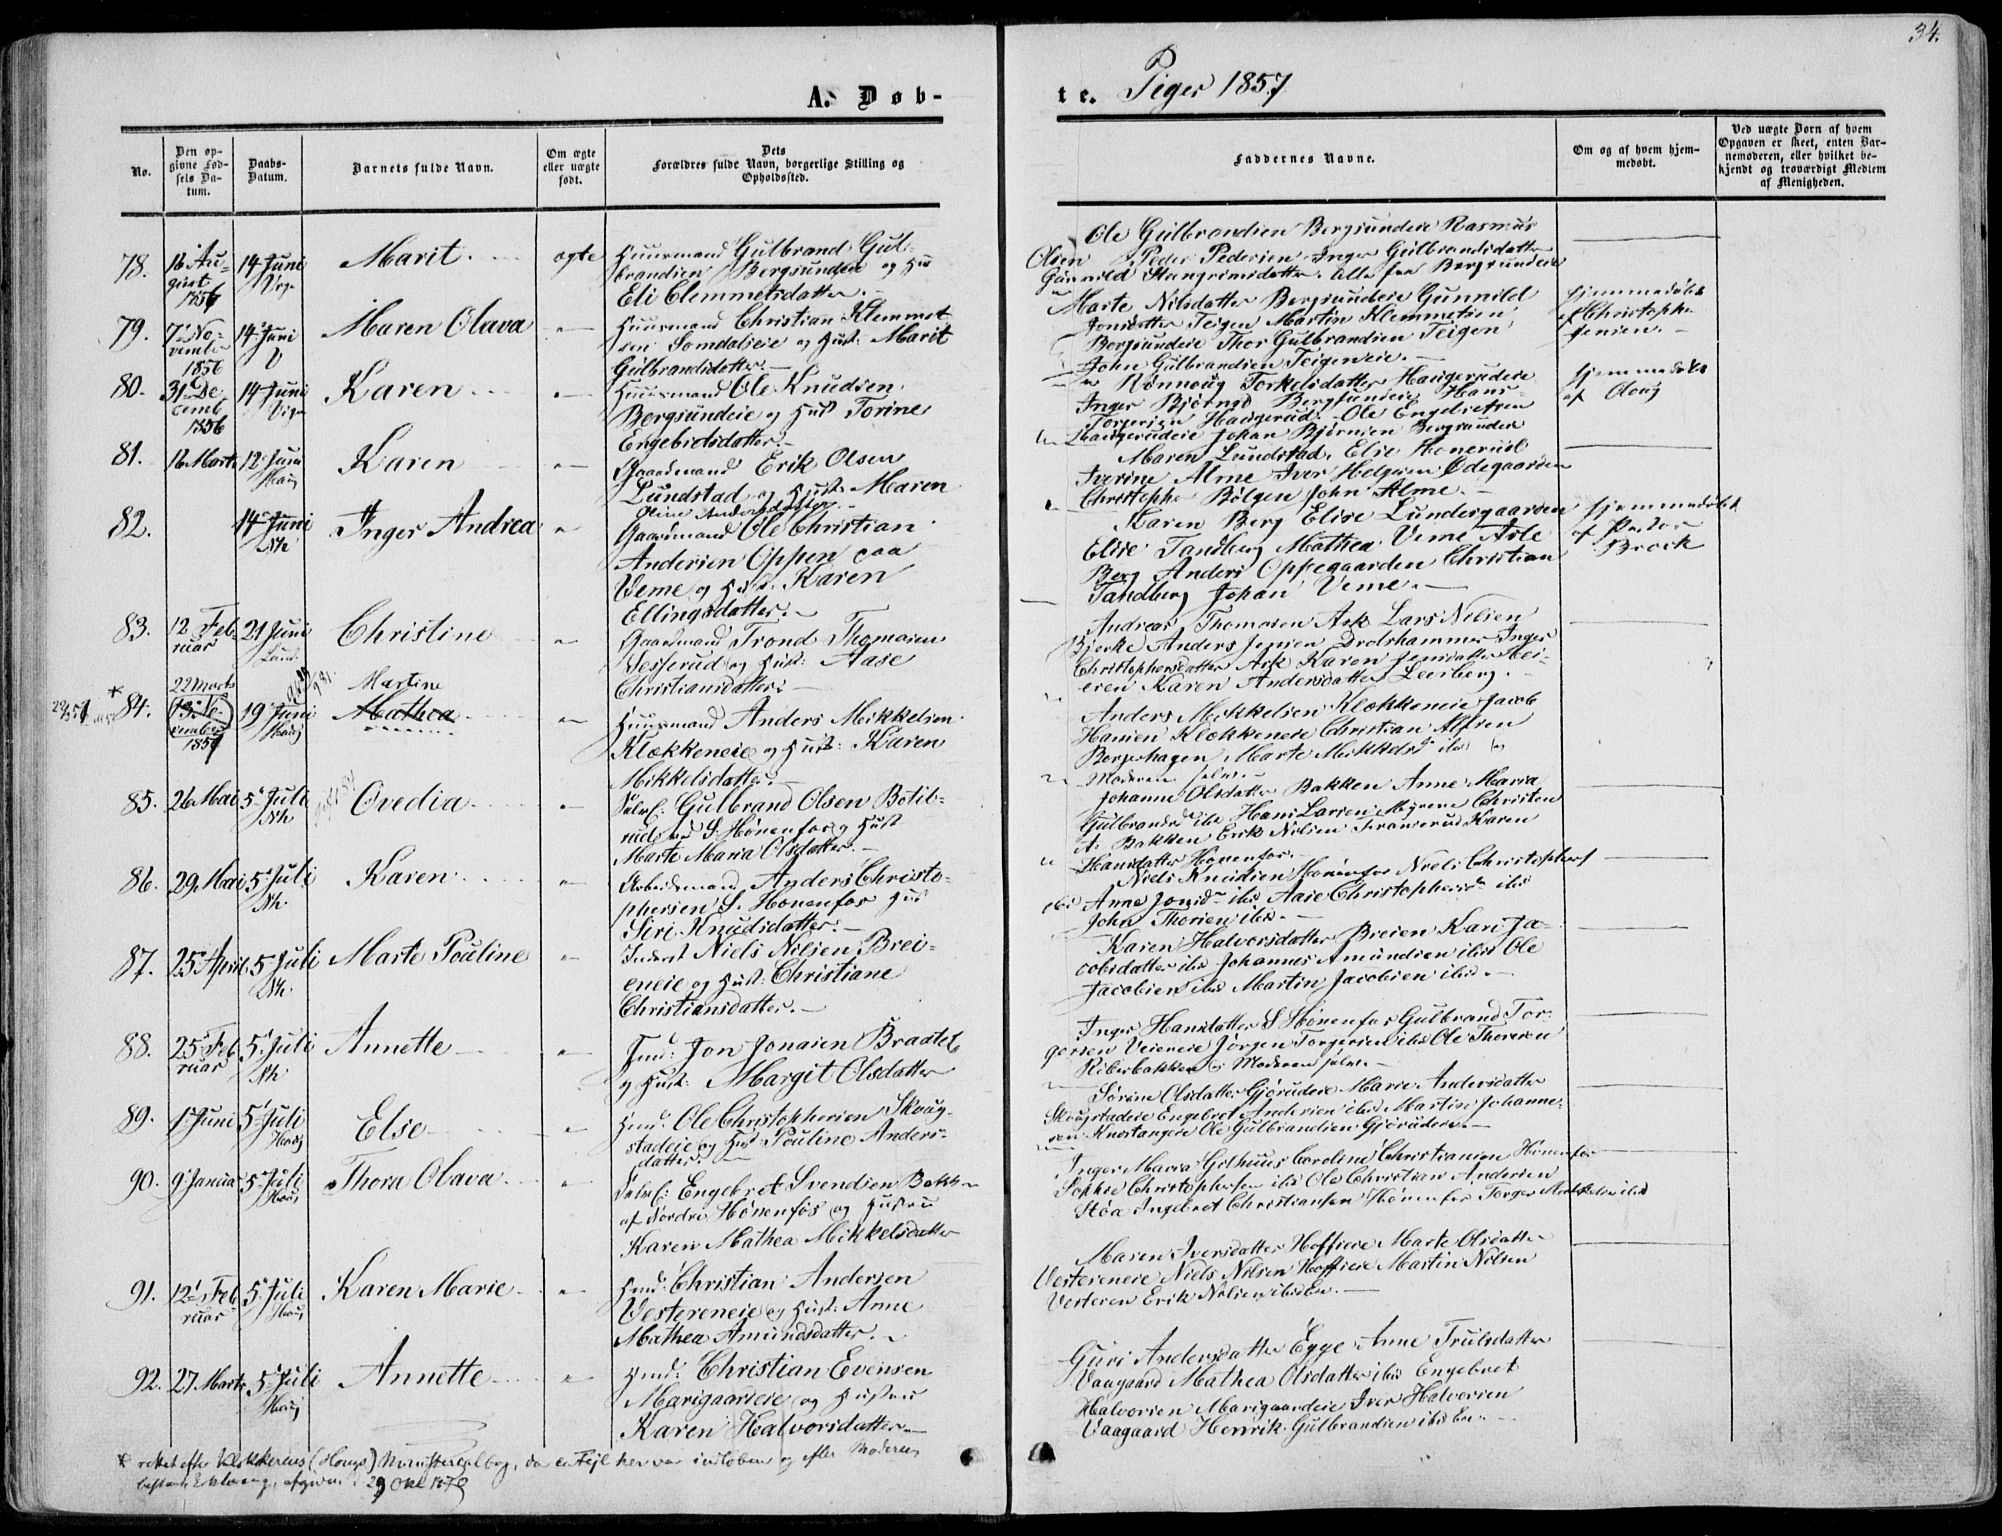 34.
A. Døb-
te. Piger 1857
No.
Den op-
givne Fød-
sels Da-
tum.
Daabs-
Datum.
Barnets fulde Navn.
Om ægte
eller uægte
født.
Dets
Forældres fulde Navn, borgerlige Stilling og
Opholdssted.
Faddernes Navne.
Om og af hvem hjem-
medøbt.
Ved uægte Børn af hvem
Opgaven er skeet, enten Bar-
nemoderen, eller hvilket be-
kjendt og troværdigt Medlem
af Menigheden.
78. 16 Au- 14 Juni Marit. ægte Huusmand Gulbrand Gul-
gust brandsen Bergsundeie og Hus
1856 Eli Clemmetsdatter.
Ole Gulbrandsen Bergsundeie Rasmus
Olsen Peder Pedersen Inger Gulbrandsdatter
Gunnild Hangrimsdatter. Alle fra Bergsundeie
79. 7 No- 14 Juni Maren Olava " Huusmand Christian Klemmet-
vember sen Somdaleie og Hust: Marit
1856 Gulbrandsdatter.
Marte Nilsdatter Bergsundeie Gunnild
Jonsdatter Teigen Martin Klemmetsen
Bergsundeie Thor Gulbrandsen Teigen
John Gulbrandsen Teigeneie.
hjemmedøbt
af Christophe
Jensen.
80. 31 De- 14 Juni Karen " Huusmand Ole Knudsen
cemb Bergsundeie og Hust Torine
1856 Engebretsdatter.
Rønnoug Torkelsdatter Haugerudeie
Inger Bjørnsd Bergsundeie Hans
Torgersen Haugerud. Ole Engebretsen
Haugerudeie Johan Bjørnsen Bergsundeie
hjemmedøbt
af Aoug
81. 16 Marts 12 Juni Karen " Gaardmand Erik Olsen
Haug Lundstad og Hust: Maren
Oline Andersdatter.
Maren Lundstad, Elise Honerud
Iverine Alme Iver Helgesen Ødegaarden
Christophe Bølgen John Alme.
82. 14 Juni Inger Andrea " Gaardmand Ole Christian
Nh Andersen Oppen paa
Veme og Hust. Karen
Ellingsdatter.
Karen Berg Elise Lundesgaarden
Elise Tandberg Mathea Veme Asle
Berg Anders Oppegaarden Christian
Tandberg Johan Veme.
hjemmedøbt
af Pastor
Brock
83. 12 Feb- 21 Juni Christine " Gaardmand Trond Thomasen
ruar Lund. Vesserud og Hust: Aase
Christiansdatter.
Andreas Thomasen Ask Lars Nilsen
Bjerke Anders Jensen Drolshammer Inger
Christophersdatter Ask Karen Jensdatter Mei-
eren Karen Andersdatter Leerberg.
22 Marts Martine
* 84. 13 No- 19 Juni Mathea " Huusmand Anders Mikkelsen
vember Haug Klækkeneie og Hust: Karen
Mikkelsdatter.
Anders Mikkelsen Klækkeneie Jacob
Hansen Klækkeneie Christian Alfsen
Borgerhagen Marte Mikkelsd ibid og
Moderen selv.
85. 26 Mai 5 Juli Ovedia " Selve: Gulbrand Olsen Botil-
Nh rud ved S. Hønenfos og Hust
Marte Maria Olsdatter.
Johanne Olsdatter Bakken Anne Maria
Gulbrandsd ibid Hans Larsen Myrene Christen
A: Bakken Erik Nilsen Svarverud Karen
Hansdatter Hønenfos.
86. 29 Mai 5 Juli Karen " Arbeidsmand Anders Christo-
Nh. phersen S. Hønenfos Hus
Siri Knudsdatter.
Niels Knudsen Hønenfos Niels Christophers
ibid Anne Jonsd ibid Aase Christophersd ibid
John Thorsen ibid.
87. 25 April 5 Juli Marte Pouline " Inderst Niels Nilsen Brei-
Nh. eneie og Hust: Christiane
Christiansdatter.
Karen Halvorsdatter Breien Kari Ja-
cobsdatter ibid Johannes Amundsen ibid Ole
Jacobsen ibid Martin Jacobsen ibid.
88. 25 Feb- 5 Juli Annette " Hmd: Jon Jonasen Braatet
ruar Nh og Hust: Margit Olsdatter
Inger Hansdatter S Hønenfos Gulbrand Tor-
gersen Veieneie Jørgen Torgersen ibid Ole Thoresen
Ribersbakken og Moderen selv.
89. 1 Juni 5 Juli Else " Hmd: Ole Christophersen Skoug-
Haug stadeie og Hust Pouline Anders-
datter.
Sørine Olsdatter Gjørudeie Marie Andersdatter
Skougstadeie Engebret Andersen ibid Martin Johanne-
sen Knestangeie Ole Gulbrandsen Gjørudeie.
90. 9 Januar 5 Juli Thora Olava " Selve: Engebret Svendsen Bakke
Haug af Nordre Hønenfos og Hustru
Karen Mathea Mikkelsdatter
Inger Maria Gethuus Caroline Christiansen Hønenfos
Sophie Christophersen ibid Ole Christian Andersen
Støa Ingebret Christiansen Hønenfos Torger Mikkelsen ibid
91. 12 Feb- 5 Juli Karen Marie " Hmd: Christian Andersen
ruar Haug Vestereneie og Hust: Anne
Mathea Amundsdatter.
Maren Iversdatter Hoffseie Marte Olsdatter
Vestereneie Niels Nilsen Hoffseie Martin Nilsen
Vesteren Erik Nilsen ibid
92. 27 Marts 5 Juli Annette " Hmd: Christian Evensen
Haug Marigaardeie og Hustru
Karen Halvorsdatter
Guri Andersdatter Egge Anne Trulsdatter
Vaagaard Mathea Olsdatter ibid Engebret
Halvorsen Marigaardeie Iver Halvorsen
Vaagaard Henrik Gulbrandsen ibid
* rettet efter Klokkerens (Hougs) Ministerialbog, da en Feil her var indløben og efter Moderens
Erklæring, afgiven 29 Okt 1870